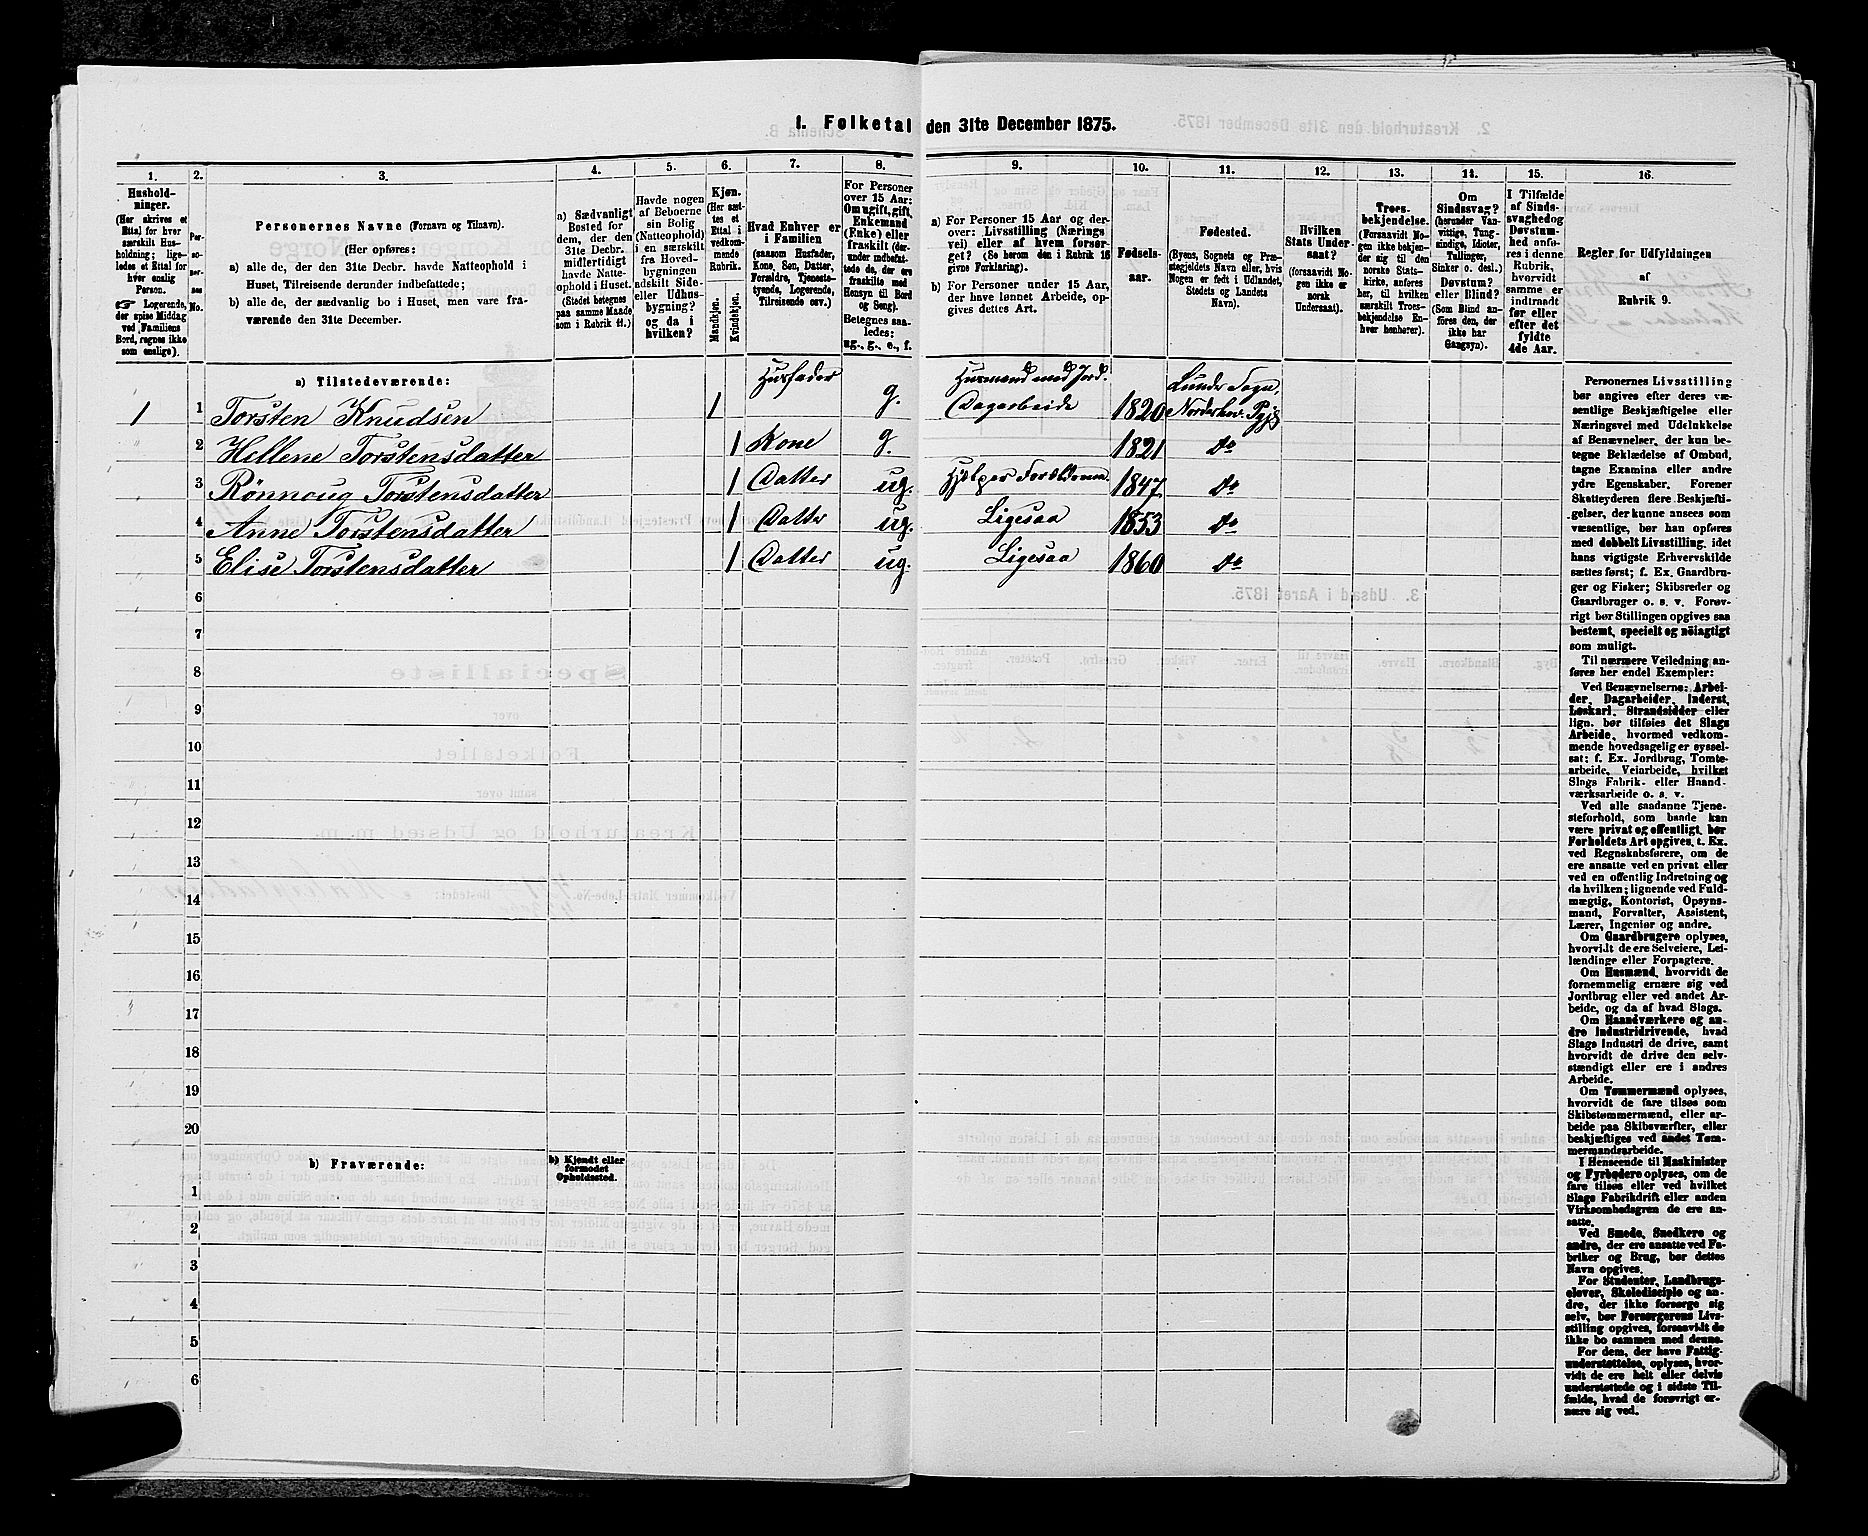 1. Folketal den 31te December 1875.
1. 2. 3. 4. 5. 6. 7. 8. 9. 10. 11. 12. 13. 14. 15. 16.
Hushold-
ninger.
(Her skrives et
Ettal for hver
særskilt Hus-
holdning; lige-
ledes et Ettal for
hver enslig
Person.
☞ Logerende,
der spise Middag
ved Familiens
Bord, regnes ikke
som enslige).
Per-
so-
ner-
nes
No.
Personernes Navne (Fornavn og Tilnavn).
(Her opføres:
a) alle de, der den 31te Decbr. havde Natteophold i
Huset, Tilreisende derunder indbefattede;
b) alle de, der sædvanlig bo i Huset, men vare fra-
værende den 31te December.
a) Sædvanligt
Bosted for
dem, der den
31te Decbr.
midlertidigt
havde Natte-
ophold i Huset.
(Stedet betegnes
paa samme Maade
som i Rubrik 11.)
Havde nogen
af Beboerne
sin Bolig
(Natteophold)
i en særskilt
fra Hoved-
bygningen
adskilt Side-
eller Udhus-
bygning?
og da i
hvilken?
Kjøn.
(Her sæt-
tes et
Ettal i
vedkom-
mende
Rubrik.
Mandkjøn.
Kvindekjøn.
Hvad Enhver er
i Familien
(saasom Husfader,
Kone, Søn, Datter,
Forældre, Tjeneste-
tyende, Logerende,
Tilreisende osv.)
For Personer
over 15 Aar:
Om ugift, gift,
Enkemand
(Enke) eller
fraskilt (der-
under indbefat-
tede de, der ere
fraskilte med
Hensyn til Bord
og Seng).
Betegnes saa-
ledes:
ug., g., e., f.
a) For Personer 15 Aar og der-
over: Livsstilling (Nærings
vei) eller af hvem forsør-
get? (Se herom den i Rubrik 16
givne Forklaring).
b) For Personer under 15 Aar,
der have lønnet Arbeide, op-
gives dettes Art.
Fødsels-
aar.
Fødested.
(Byens, Sognets og Præ-
stegjeldets Navn eller, hvis
Nogen er født i Udlandet,
Stedets og Landets
Navn).
Hvilken
Stats Under-
saat?
(forsaavidt No-
gen ikke er
norsk
Undersaat).
Troes-
bekjendelse.
(Forsaavidt No-
gen ikke bekjen-
der sig til den
norske Stats-
kirke, anføres
her, til hvilken
særskilt Troes-
bekjendelse En-
hver henhører).
Om
Sindssvag?
(herunder Van-
vittige, Tung-
sindige, Idioter,
Tullinger,
Sinker o. desl.)
Døvstum?
eller Blind?
(Som Blind an-
føres den, der
ikke har
Gangsyn).
I Tilfælde
af Sinds-
svaghed og
Døvstum-
hed anfø-
res i denne
Rubrik,
hvorvidt
samme er
indtraadt
før eller
efter det
fyldte
4de Aar.
Regler for Udfyldningen
af
Rubrik 9.
a) Tilstedeværende:
1 1 Torsten Knudsen 1 Husfader g. Husmand med Jord. Dagarbeide 1820 Lunder Sogn, Norderhov Pgj
2 Hellene Torstensdatter 1 Kone g. 1821 do
3 Rönnoug Torstensdatter 1 Datter ug. Hjelper Forældrene 1847 do
4 Anne Torstensdatter 1 Datter ug. Ligesaa 1853 do
5 Elise Torstensdatter 1 Datter ug. Ligesaa 1860 do
6
7
8
9
10
11
12
13
14
15
16
17
18
19
20
b) Fraværende: b) Kjendt eller
formodet
Opholdssted.
1
2
3
4
5
6
Personernes Livsstilling
bør angives efter deres væ-
sentlige Beskjæftigelse eller
Næringsvei med Udelukkelse
af Benævnelser, der kun be-
tegne Beklædelse af Ombud,
tagne Examina eller andre
ydre Egenskaber. Forener
Skatteyderen flere Beskjæfti-
gelser, der kunne ansees som
væsentlige, bør han opføres
med dobbelt Livsstilling, idet
hans vigtigste Erhvervskilde
sættes først; f. Ex. Gaardbru-
ger og Fisker; Skibsreder og
Gaardbruger o. s. v. Forøv-
rigt bør Stillingen opgives saa
bestemt, specielt og nøiagtigt
som muligt.
Til nærmere Veiledning an-
føres her endel Exempler:
Ved Benævnelserne: Arbei-
der, Dagarbeider, Inderst,
Løskarl, Strandsidder eller
lign. bør tilføies det Slags
Arbeide, hvormed vedkom-
mende hovedsagelig er syssel-
sat; f. Ex. Jordbrug, Tomte-
arbeide, Veiarbeide, hvilket
Slags Fabrik- eller Haand-
værksarbeide o. s. v.
Ved alle saadanne Tjene-
steforhold, som baade kan
være privat og offentligt, bør
Forholdets Art opgives, t. Ex.
ved Regnskabsførere, om de
ere ansatte ved en privat eller
ved en offentlig Indretning og
da hvilken; lignende ved Fuld-
mægtig, Kontorist, Opsyns-
mand, Forvalter, Assistent,
Lærer, Ingeniør og andre.
Om Gaardbrugere oplyses,
hvorvidt de ere Selveiere, Lei-
lændinge eller Forpagtere.
Om Husmænd, hvorvidt de
fornemmelig ernære sig ved
Jordbrug eller ved andet Ar-
beide, og da af hvad Slags.
Om Haandværkere og an-
dre Industridrivende, hvad
Slags Industri de drive, samt
hvorvidt de drive den selv-
stændigt eller ere i andres
Arbeide.
Om Tømmermænd oplyses,
hvorvidt de fare tilsøs som
Skibstømmermænd, eller ar-
beide paa Skibsværfter, eller
beskjæftiges ved andet Tøm-
mermandsarbeide.
I Henseende til Maskinister
og Fyrbødere oplyses, om de
fare tilsøs eller ved hvilket
Slags Fabrikdrift eller anden
Virksomhedsgren de ere an-
satte.
Ved Smede, Snedkere og
andre, der ere ansatte ved Fa-
briker og Brug, bør dettes
Navn opgives.
For Studenter, Landbrugs-
elever, Skoledisciple og an-
dre, der ikke forsørge sig
selv, bør Forsørgerens Livs-
stilling opgives, forsaavidt de
ikke bo sammen med denne.
For dem, der have Fattig-
understøttelse, oplyses, hvor-
vidt de ere helt eller delvis
understøttede og i sidste Til-
fælde, hvad de forøvrigt er-
nære sig ved.